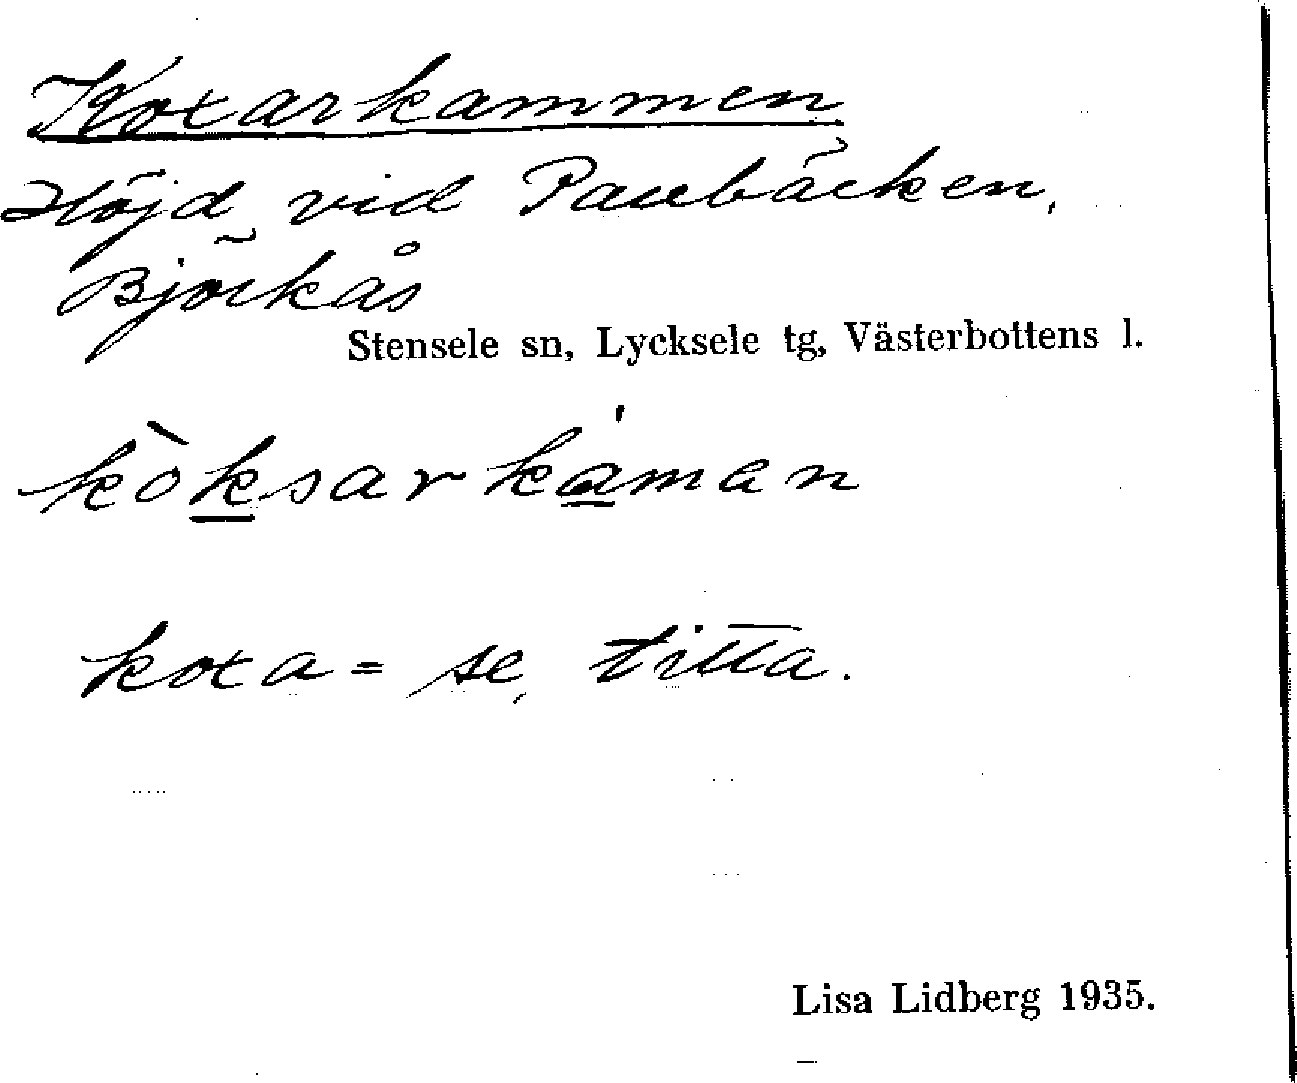 Koxarkammen
Höjd vid Paubäcken,
Björkås
Stensele sn, Lycksele tg, Västerbottens l.
kòksarkáman
koxa = se, titta.
Lisa Lidberg 1935.